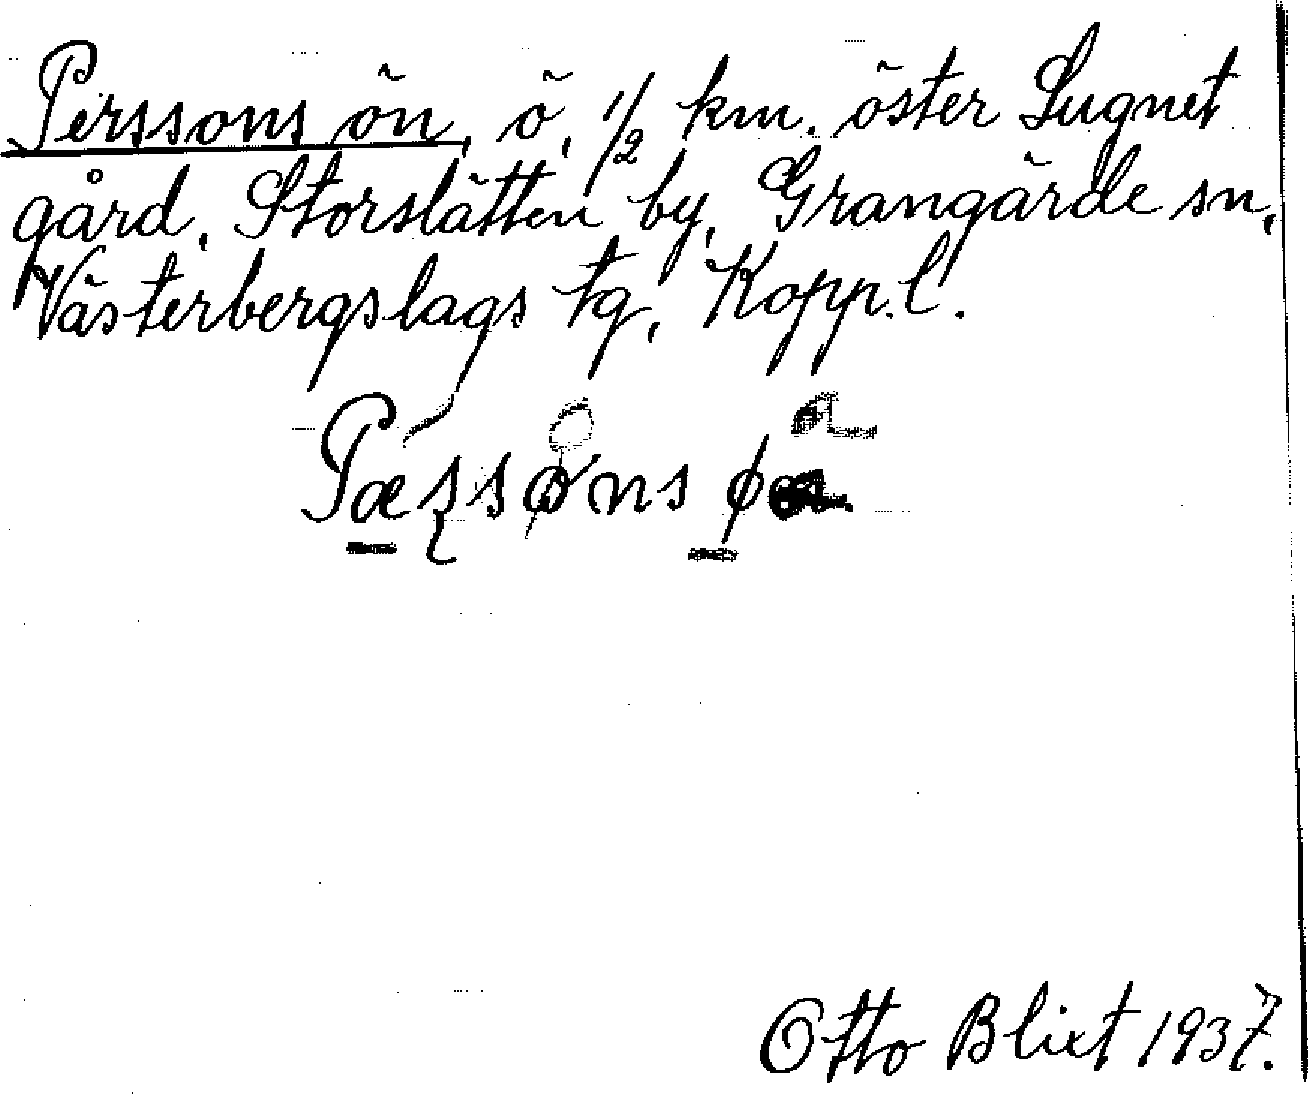 Perssons ön, ö, 1/2 km. öster Lugnet
gård, Storslätten by, Grangärde sn,
Västerbergslags tg, Kopp.l.
Otto Blixt 1937.